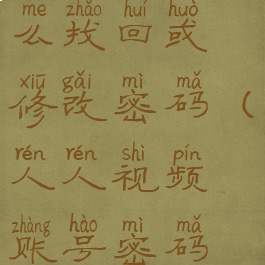 me zhǎo huí huò
么找回或
xiū gǎi mì mǎ
修改密码(
rén rén shì pín
人人视频
zhàng hào mì mǎ
账号密码